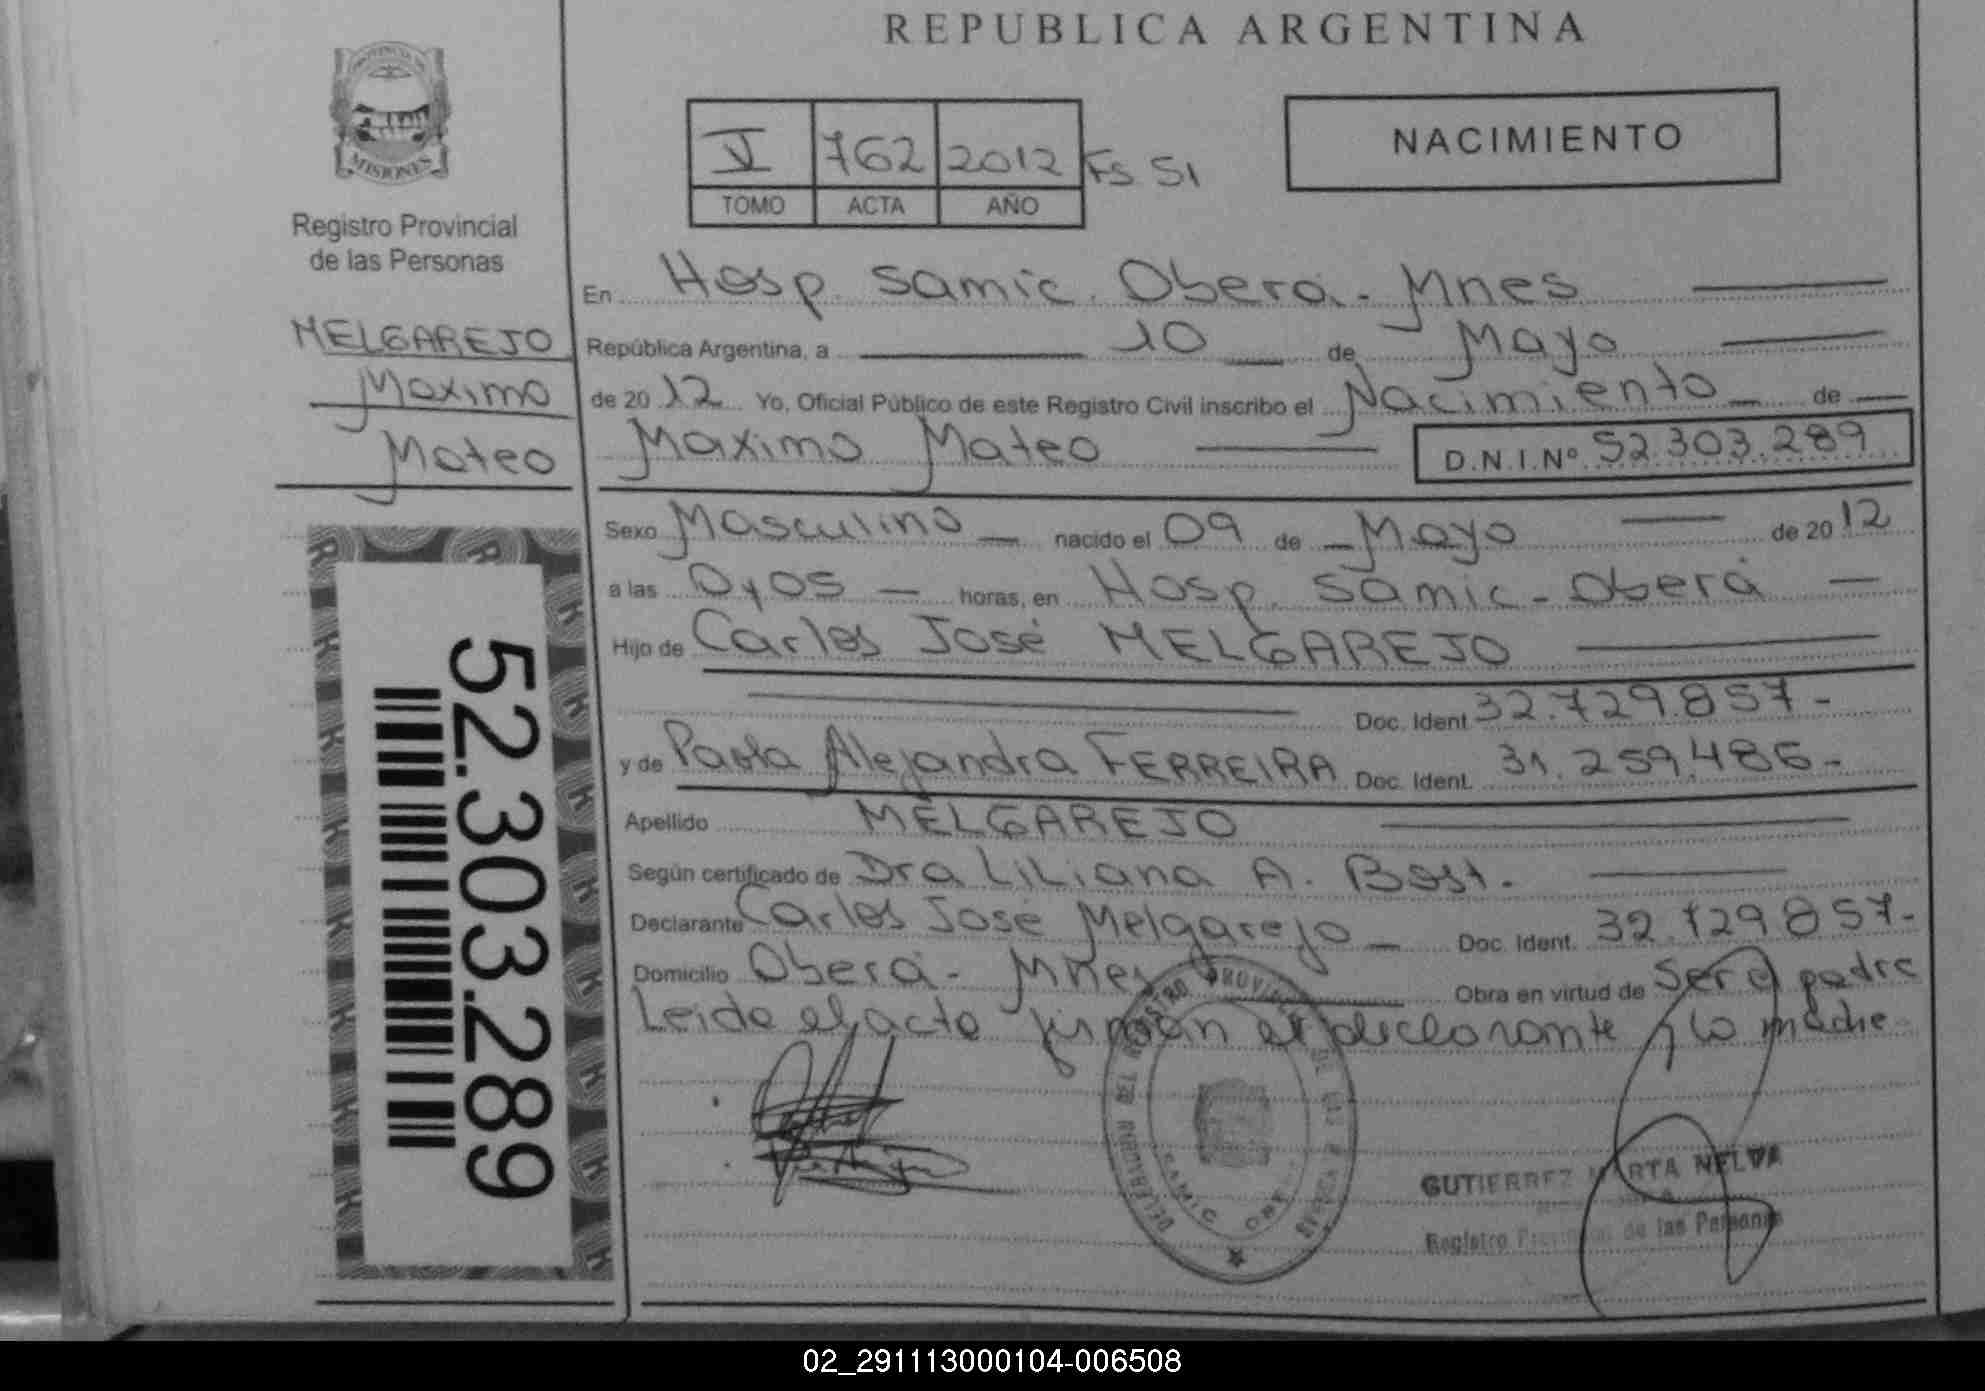 REPUBLICA ARGENTINA
PROVINCIA DE
MISIONES
Registro Provincial
de las Personas
MELGAREJO
Maximo
Mateo
52.303.289
V 762 2012 Fs 51
TOMO ACTA AÑO
NACIMIENTO
En Hosp. Samic. Oberá - Mnes
República Argentina, a 10 de Mayo
de 2012 Yo, Oficial Público de este Registro Civil inscribo el Nacimiento de
Maximo Mateo D.N.I.Nº 52.303.289
Sexo Masculino nacido el 09 de Mayo de 2012
a las 0,05 horas, en Hosp. Samic - Oberá
Hijo de Carlos José MELGAREJO
Doc. Ident. 32.729.857-
y de Paola Alejandra FERREIRA Doc. Ident. 31.259.486-
Apellido MELGAREJO
Según certificado de Dra Liliana A. Bast.
Declarante Carlos José Melgarejo Doc. Ident. 32.729.857-
Domicilio Oberá - Mnes Obra en virtud de Ser el padre
Leida el acta firman el declarante y la madre
GUTIERREZ MARTA NELVA
Registro Provincial de las Personas
02_291113000104-006508